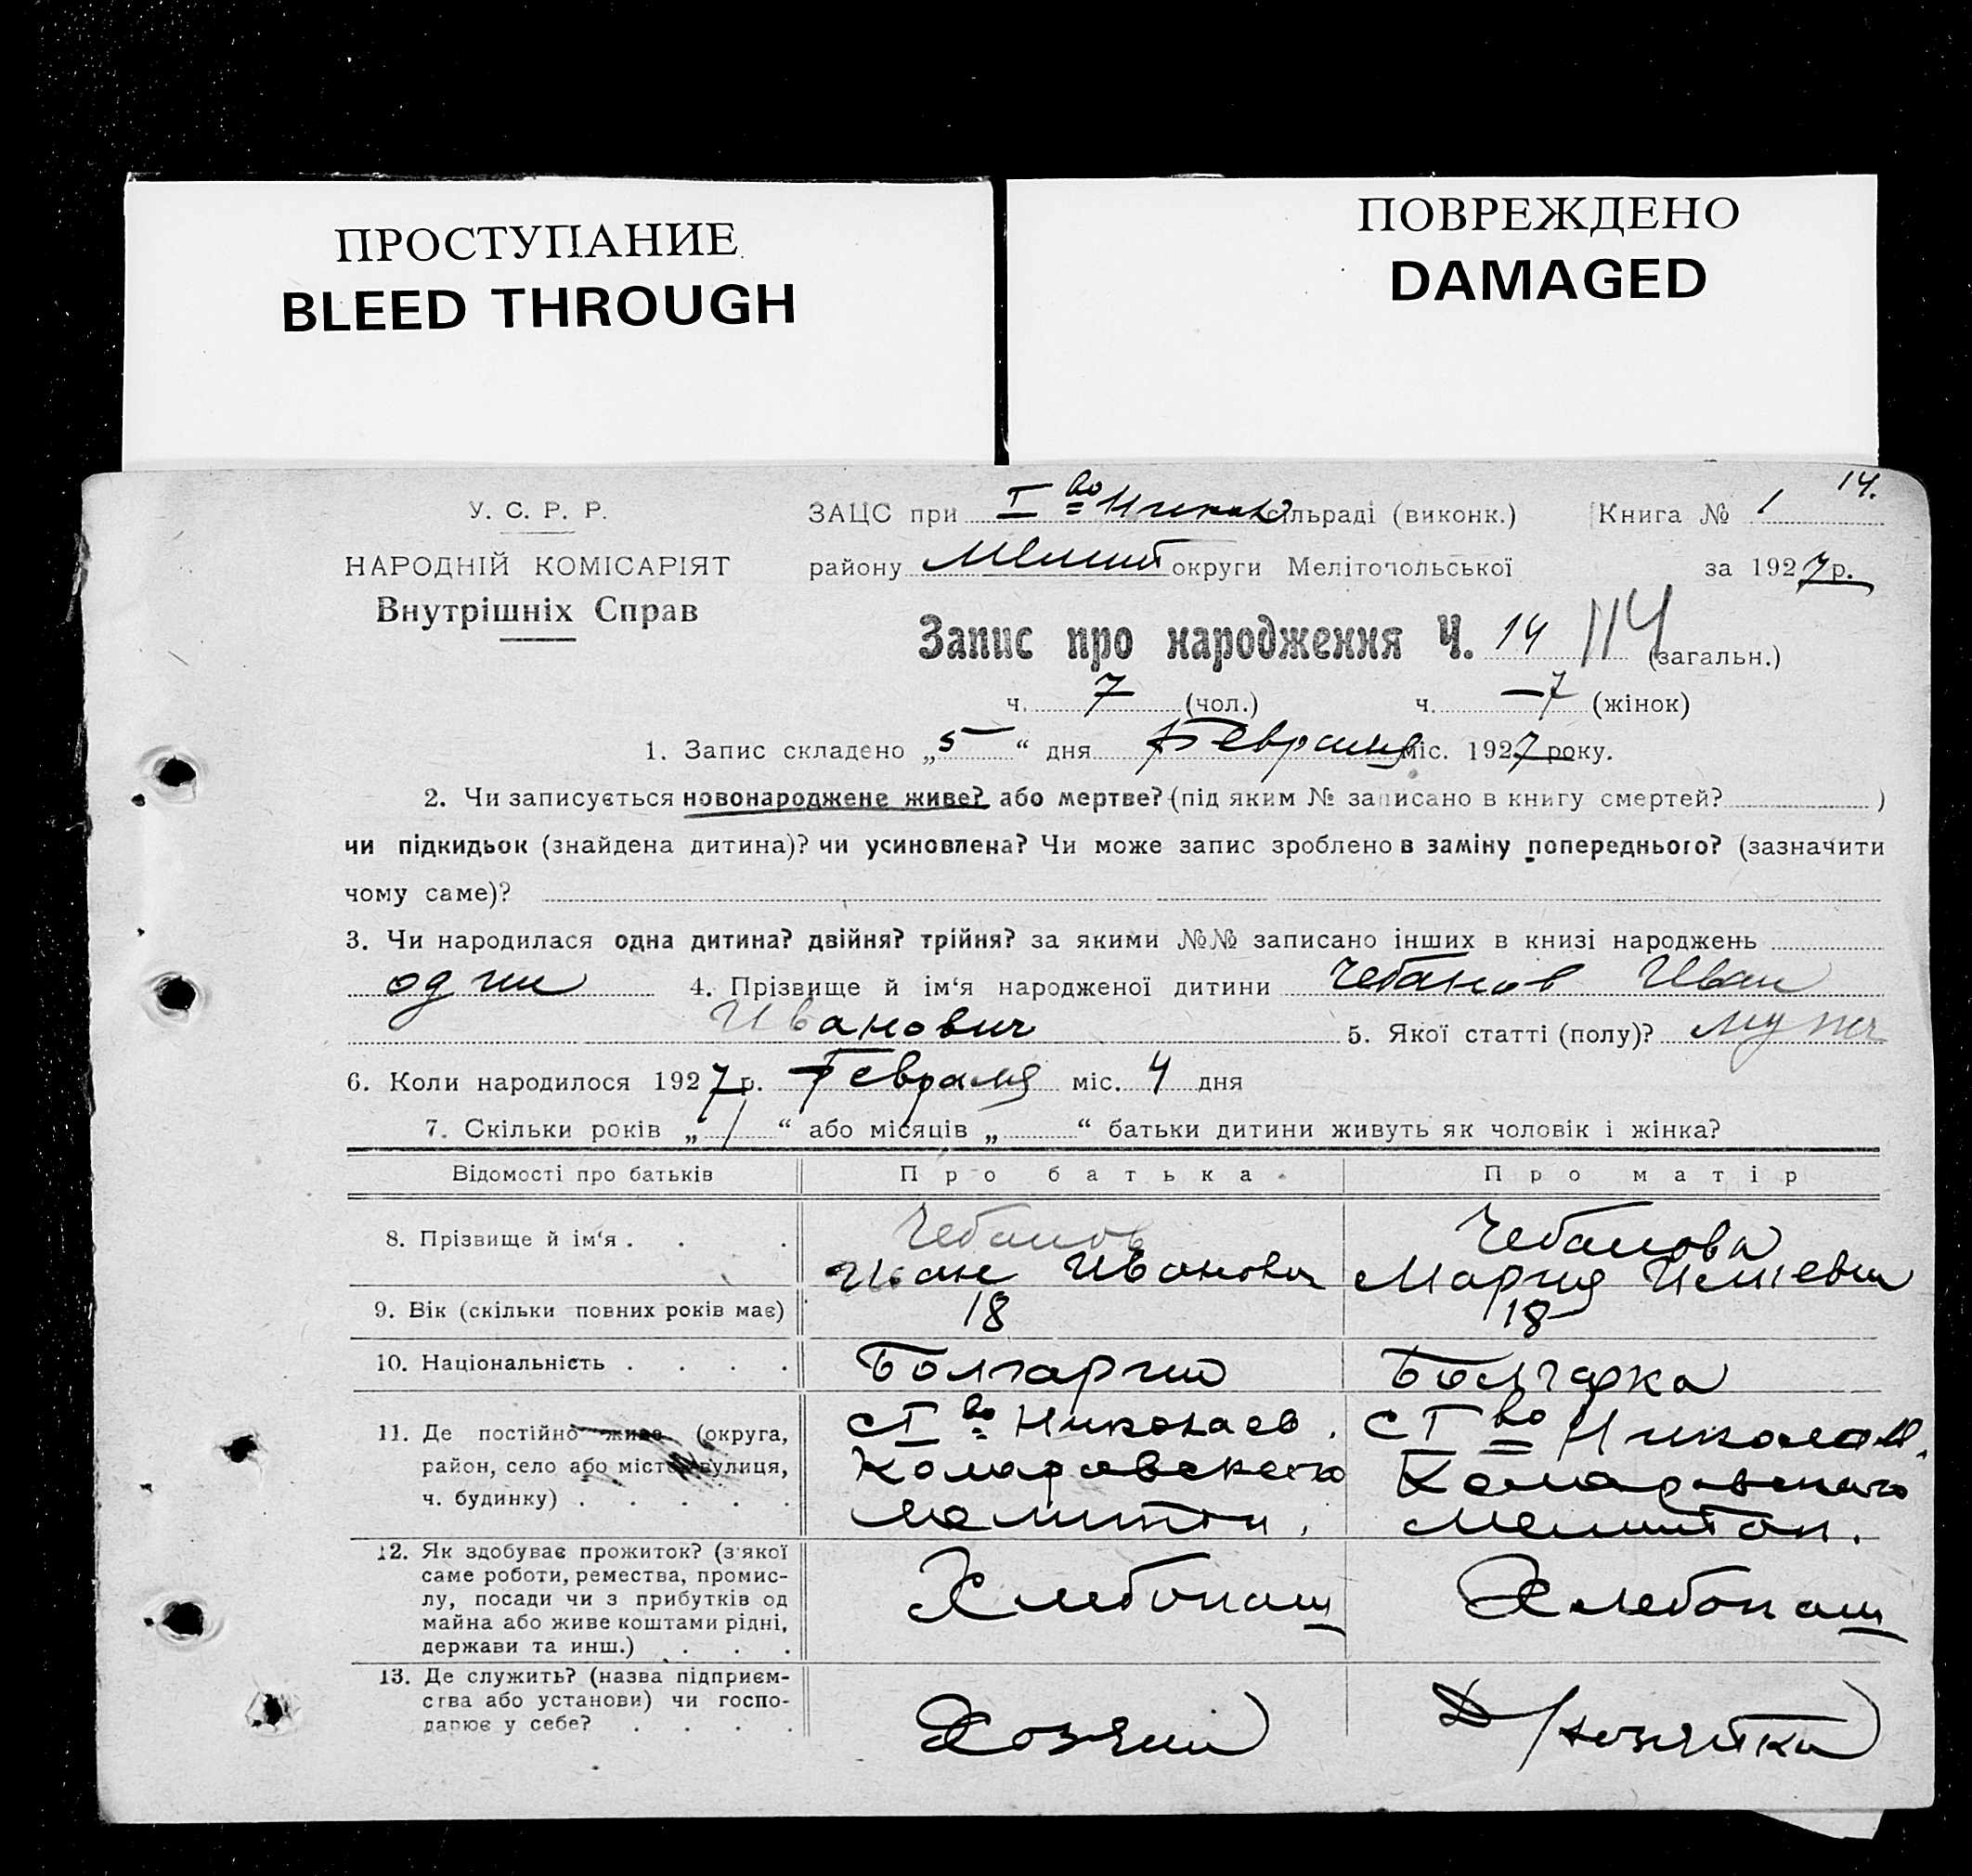 ПРОСТУПАНИЕ
BLEED THROUGH
ПОВРЕЖДЕНО
DAMAGED
14.
У. С. Р. Р.
НАРОДНІЙ КОМІСАРІЯТ
Внутрішніх Справ
ЗАЦС при I во Никол сільраді (виконк.) Книга № 1
району Мелит округи Мелітопольської за 1927 р.
Запис про народження Ч. 14 114 (загальн.)
ч. 7 (чол.) ч. —7 (жінок)
1. Запис складено „5“ дня Февраля міс. 1927 року.
2. Чи записується новонароджене живе? або мертве? (під яким № записано в книгу смертей? )
чи підкидьок (знайдена дитина)? чи усиновлена? Чи може запис зроблено в заміну попереднього? (зазначити
чому саме)?
3. Чи народилася одна дитина? двійня? трійня? за якими №№ записано інших в книзі народжень
один 4. Прізвище й ім‘я народженої дитини Чебанов Иван
Иванович 5. Якої статті (полу)? муж
6. Коли народилося 1927 р. Февраля міс. 4 дня
7. Скільки років „1“ або місяців „ “ батьки дитини живуть як чоловік і жінка?
Відомості про батьків Про батька Про матір
8. Прізвище й ім‘я . . . Чебанов Чебанова
Иван Иванович Мария
9. Вік (скільки повних років має) 18 18
10. Національність . . . . Болгарин Болгарка
11. Де постійно живе (округа, с I во Николаев. с I во Николаев.
район, село або місто, вулиця, Комаровского Комаровского
ч. будинку) . . . . . Мелитоп. Мелитоп.
12. Як здобуває прожиток? (з якої
саме роботи, ремества, промис-
лу, посади чи з прибутків од Хлебопаш Хлебопаш
майна або живе коштами рідні,
держави та инш.) . . .
13. Де служить? (назва підприєм-
ства або установи) чи госпо-
дарює у себе? . . . . Хозяин Хозяйка